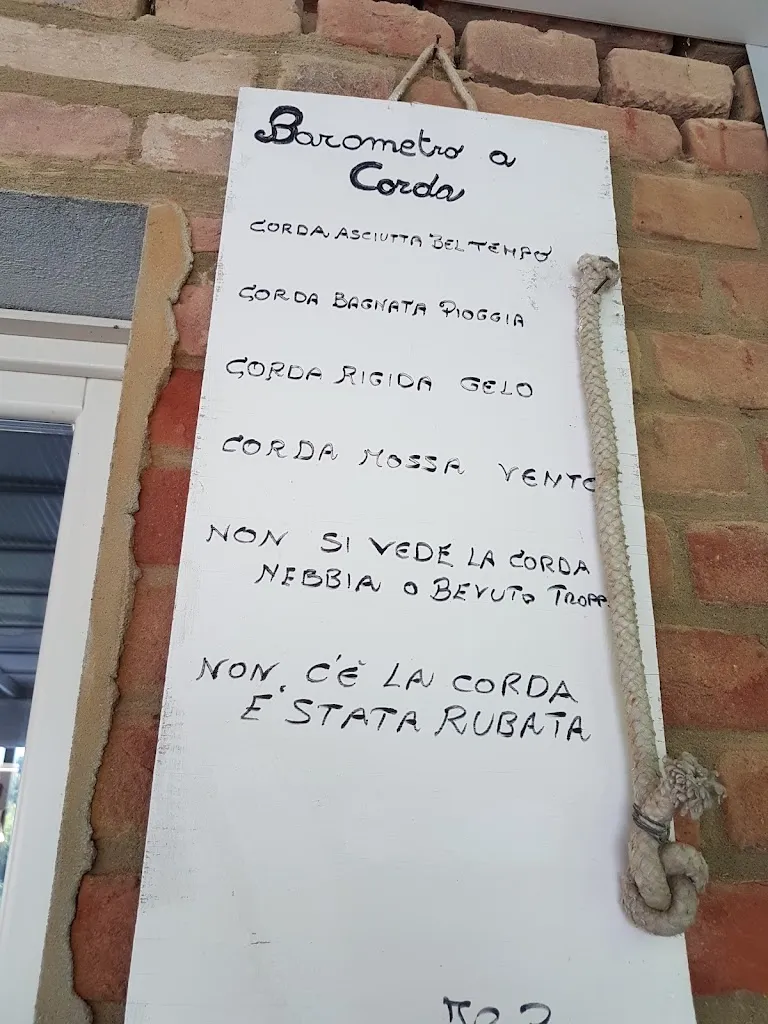 Barometro a
Corda
CORDA ASCIUTTA BEL TEMPO
CORDA BAGNATA PIOGGIA
CORDA RIGIDA GELO
CORDA MOSSA VENTO
NON SI VEDE LA CORDA
NEBBIA O BEVUTO TROPP
NON C'È LA CORDA
E' STATA RUBATA